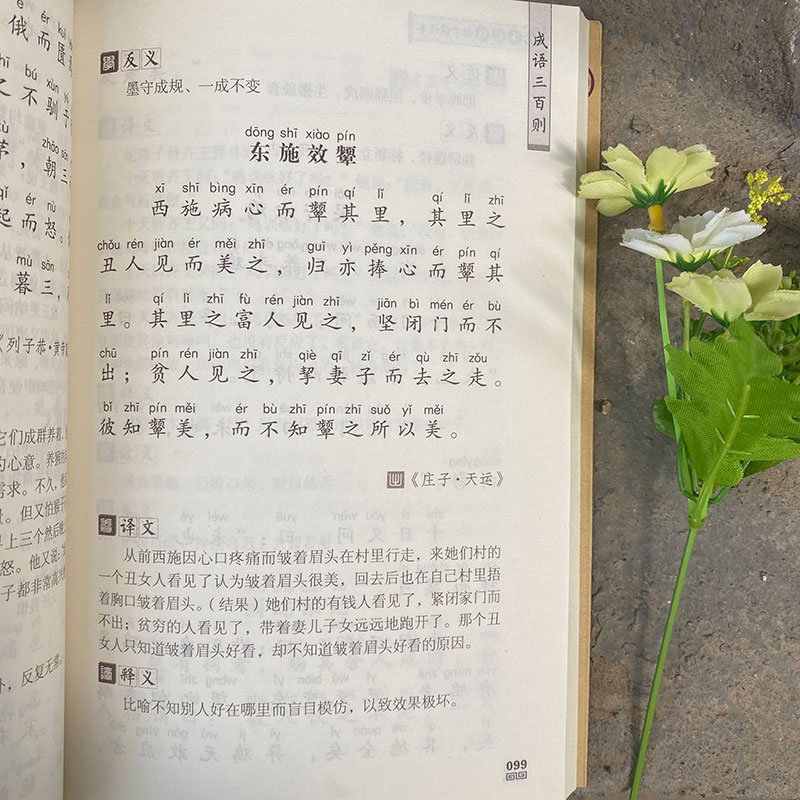 俄而匮
bú xùn yí
之不驯于
zhāo sān
茅，朝三
ér nù
起而怒。
mù sān
暮三，
它们成群养着，
的心意。
需求。不久，
但又怕猴子
早上三个然后
怒。他又说：
子都非常高
外，反复无常
成语三百则
反义
墨守成规、一成不变
dōng shī xiào pín
东施效颦
xī shī bìng xīn ér pín qí lǐ qí lǐ zhī
西施病心而颦其里，其里之
chǒu rén jiàn ér měi zhī guī yì pěng xīn ér pín qí
丑人见而美之，归亦捧心而颦其
lǐ qí lǐ zhī fù rén jiàn zhī jiān bì mén ér bù
里。其里之富人见之，坚闭门而不
chū pín rén jiàn zhī qiè qī zǐ ér qù zhī zǒu
出；贫人见之，挈妻子而去之走。
bǐ zhī pín měi ér bù zhī pín zhī suǒ yǐ měi
彼知颦美，而不知颦之所以美。
出《庄子·天运》
译文
从前西施因心口疼痛而皱着眉头在村里行走，来她们村的
一个丑女人看见了认为皱着眉头很美，回去后也在自己村里捂
着胸口皱着眉头。（结果）她们村的有钱人看见了，紧闭家门而
不出；贫穷的人看见了，带着妻儿子女远远地跑开了。那个丑
女人只知道皱着眉头好看，却不知道皱着眉头好看的原因。
释义
比喻不知别人好在哪里而盲目模仿，以致效果极坏。
099